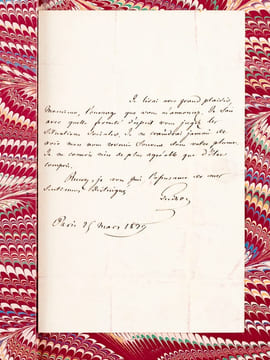 Je lirai avec grand plaisir,
Monsieur, l'ouvrage que vous m'annoncez. Je sais
avec quelle d'esprit vous jugez les
situations sociales. Je ne craindrai jamais de
voir mon nom revenir souvent sous votre plume.
Je ne connais rien de plus agréable que d'être
compris.
Recevez, je vous prie l'expression de mes
sentiments distingués
Paris 25 mars 1879